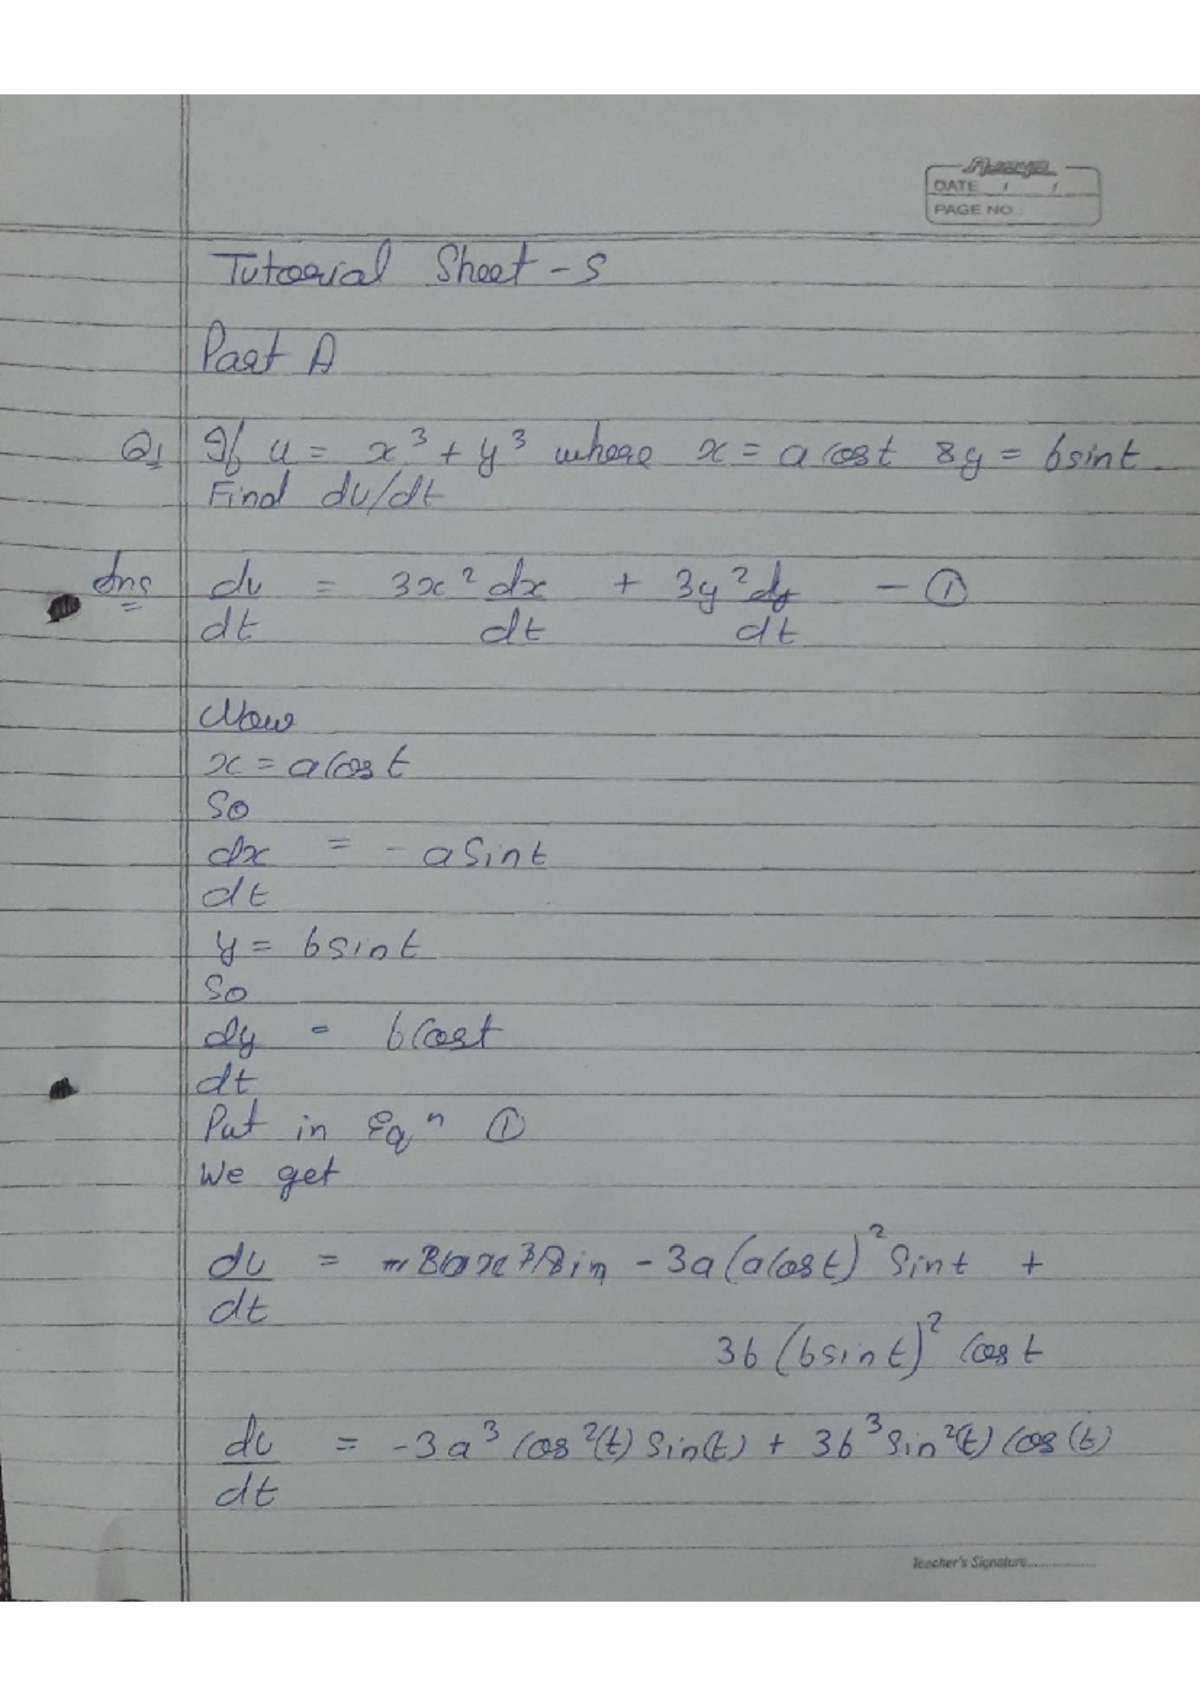 DATE / /
PAGE NO.:
Tutorial Sheet - 5
Part A
Q1 If u = x³ + y³ where x = a cost & y = b sint.
Find du/dt
Ans du/dt = 3x² dx/dt + 3y² dy/dt - ①
Now
x = a cos t
So
dx/dt = - a Sint
y = b sint
So
dy/dt = b Cost
Put in Eqⁿ ①
We get
du/dt = - 3a (a Cos t)² Sint +
3b (b sint)² Cos t
du/dt = -3a³ Cos²(t) Sin(t) + 3b³ Sin²(t) Cos(t)
Teacher's Signature..................